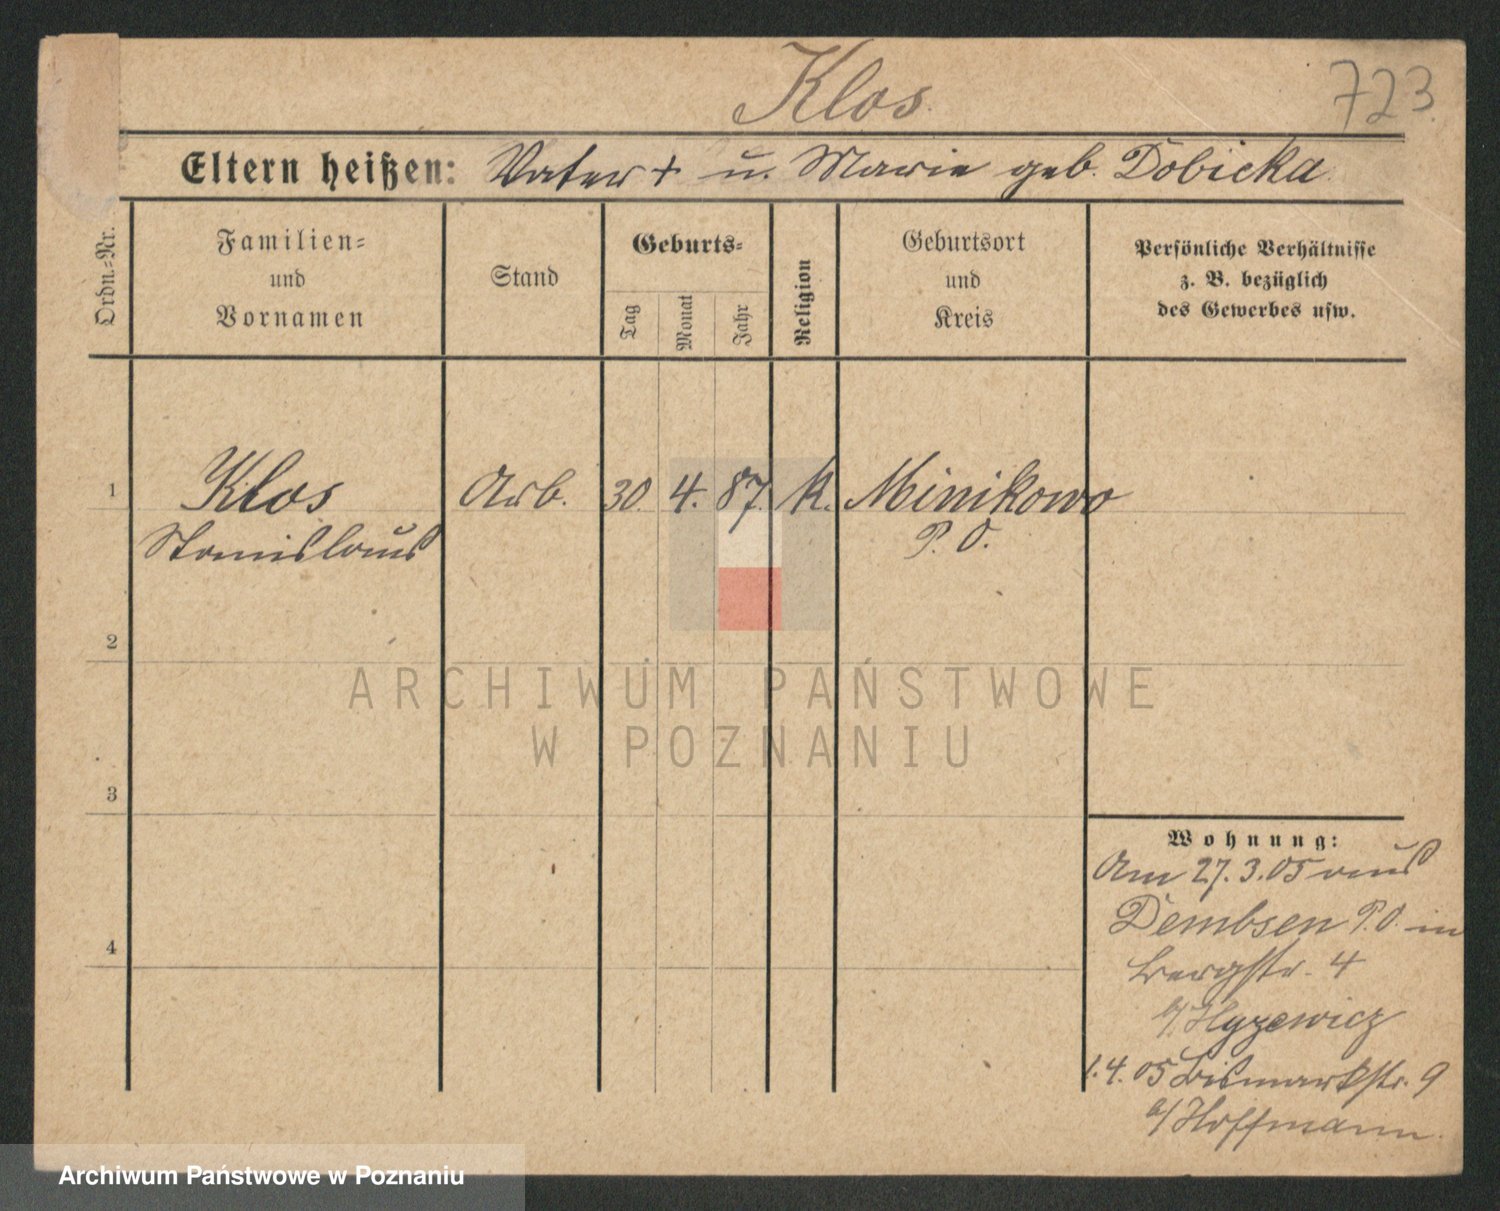 Klos.
723.
Eltern heißen: Vater + u. Marie geb. Dobicka.
Ordn.-Nr.
Familien-
und
Vornamen
Stand
Geburts-
Tag
Monat
Jahr
Religion
Geburtsort
und
Kreis
Persönliche Verhältnisse
z. B. bezüglich
des Gewerbes usw.
1 Klos Arb. 30. 4. 87. k. Minikowo
Stanislaus P. O.
2
3
4
ARCHIWUM PAŃSTWOWE
W POZNANIU
Wohnung:
Am 27.3.05 aus
Dembsen P.O. in
Bergstr. 4
b/ Hyzewicz
1.4.05 Bismarkstr. 9
b/ Hoffmann.
Archiwum Państwowe w Poznaniu